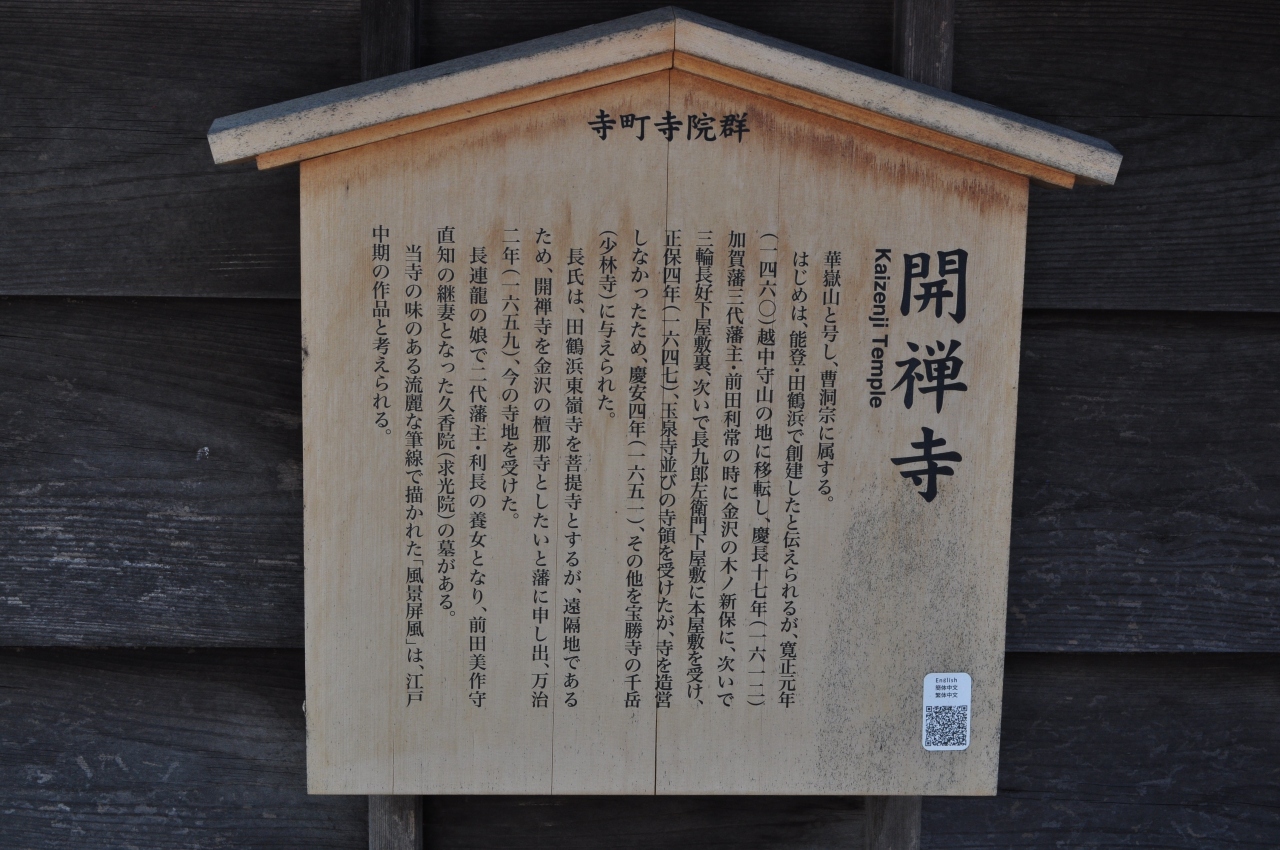 寺町寺院群
開禅寺
Kaizenji Temple
華嶽山と号し、曹洞宗に属する。
はじめは、能登・田鶴浜で創建したと伝えられるが、寛正元年
(一四六〇)越中守山の地に移転し、慶長十七年(一六一二)
加賀藩三代藩主・前田利常の時に金沢の木ノ新保に、次いで
三輪長好下屋敷裏、次いで長九郎左衛門下屋敷に本屋敷を受け、
正保四年(一六四七)、玉泉寺並びの寺領を受けたが、寺を造営
しなかったため、慶安四年(一六五一)、その他を宝勝寺の千岳
(少林寺)に与えられた。
長氏は、田鶴浜東嶺寺を菩提寺とするが、遠隔地である
ため、開禅寺を金沢の檀那寺としたいと藩に申し出、万治
二年(一六五九)、今の寺地を受けた。
長連龍の娘で二代藩主・利長の養女となり、前田美作守
直知の継妻となった久香院(求光院)の墓がある。
当寺の味のある流麗な筆線で描かれた「風景屏風」は、江戸
中期の作品と考えられる。
English
簡体中文
繁体中文